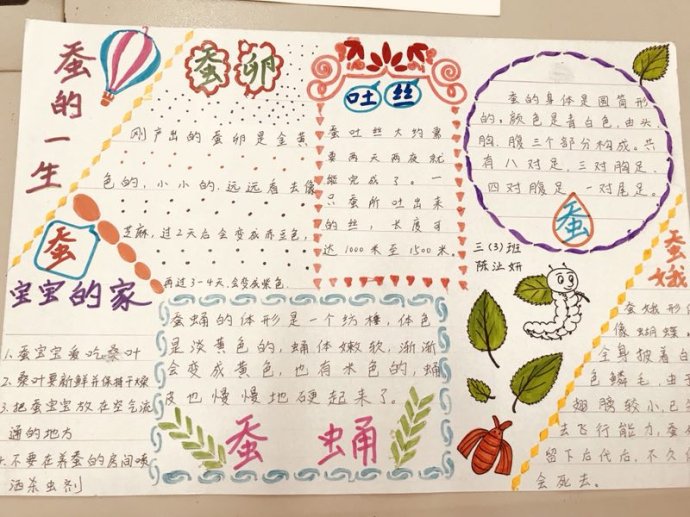 蚕的一生
蚕卵
刚产出的蚕卵是金黄
色的,小小的,远远看去像
芝麻,过2天后会变成赤豆色,
再过3-4天,会变成紫色.
吐丝
蚕吐丝大约需
要两天两夜就
能完成了。一
只蚕所吐出来
的丝,长度可
达1000米至1500米。
蚕的身体是圆筒形
的,颜色是青白色,由头、
胸、腹三个部分构成。共
有八对足,三对胸足、
四对腹足、一对尾足。
蚕
三(3)班
陈
妍
蚕
宝宝的家
1.蚕宝宝爱吃桑叶
2.桑叶要新鲜并保持干燥
3.把蚕宝宝放在空气流
通的地方
4.不要在养蚕的房间喷
洒杀虫剂
蚕蛹的体形是一个纺棰,体色
是淡黄色的,蛹体嫩软,渐渐
会变成黄色,也有米色的,蛹
皮也慢慢地硬起来了。
蚕蛹
蚕蛾
蚕蛾形
像蝴蝶
全身披着白
色鳞毛,由于
翅膀较小,已
去飞行能力,蚕
留下后代后,不久
会死去。